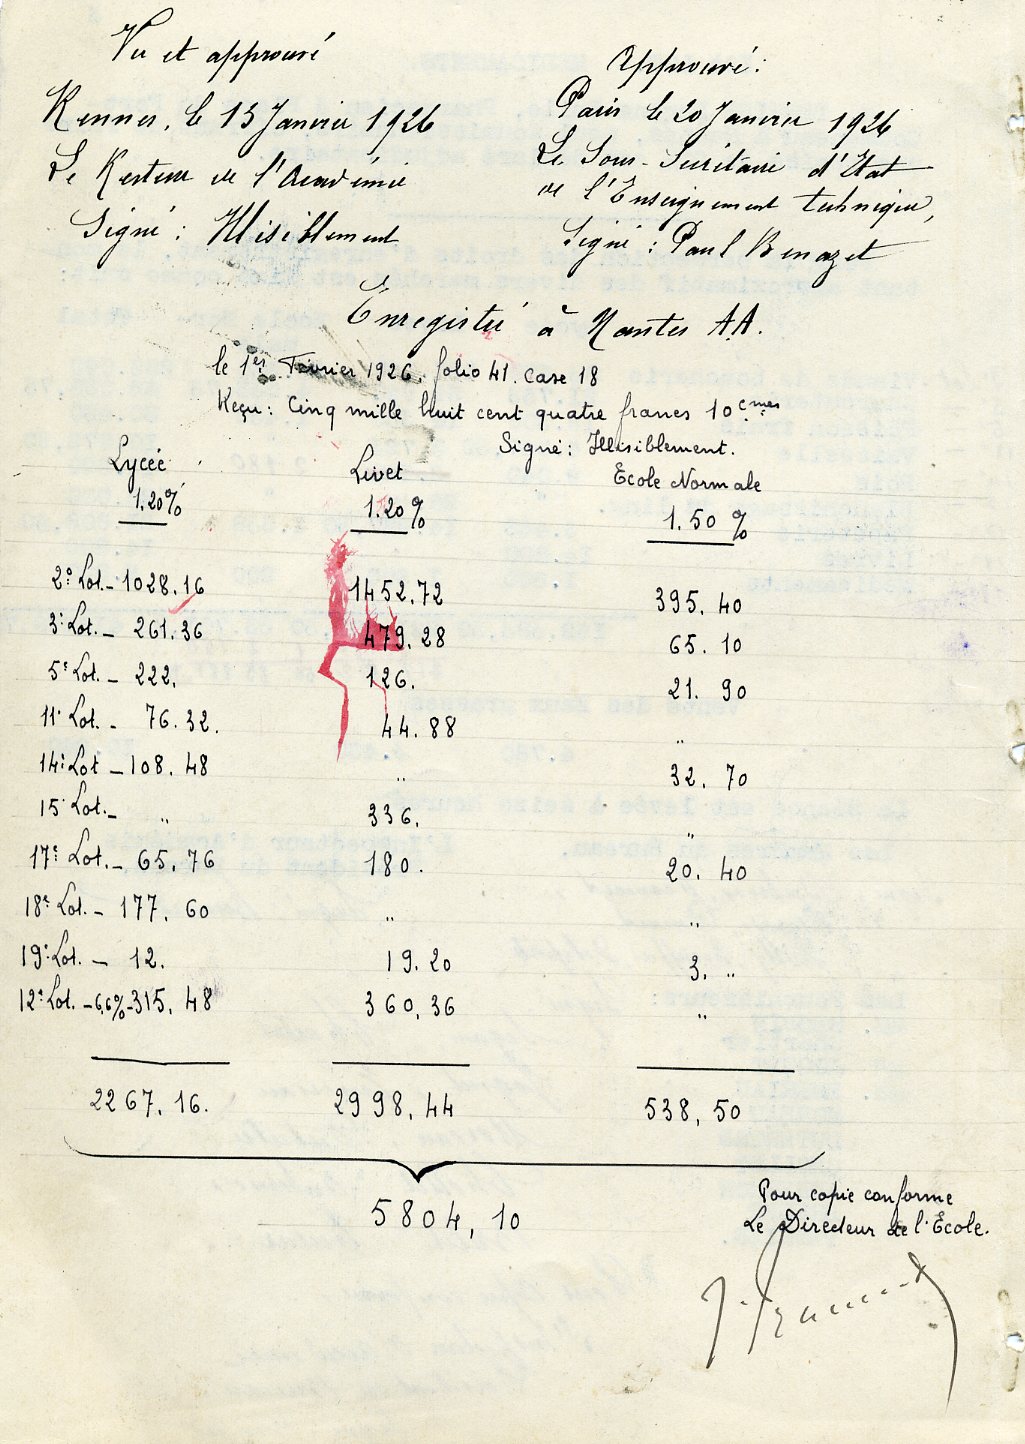 Vu et approuvé
Rennes, le 13 Janvier 1926
Le Recteur de l'Académie
Signé : Illisiblement
Approuvé :
Paris le 20 Janvier 1926
Le Sous-Secrétaire d'Etat
de l'Enseignement technique,
Signé : Paul Benazet
Enregistré à Nantes A.A.
le 1er Février 1926. folio 41. Case 18
Reçu : Cinq mille huit cent quatre francs 10 cmes
Signé : Illisiblement.
Lycée Livet Ecole Normale
1.20% 1.20% 1.50 %
2e Lot. - 1028.16 1452.72 395.40
3e Lot. - 261.36 479.28 65.10
5e Lot. - 222. 126. 21.90
11e Lot. - 76.32. 44.88 "
14e Lot - 108.48 " 32.70
15e Lot. - " 336. "
17e Lot. - 65.76 180. 20.40
18e Lot. - 177.60 " "
19e Lot. - 12. 19.20 3. "
12e Lot. - 6,6% - 315.48 360,36 "
2267.16. 2998,44 538,50
5804,10
Pour copie conforme
Le Directeur de l'Ecole.